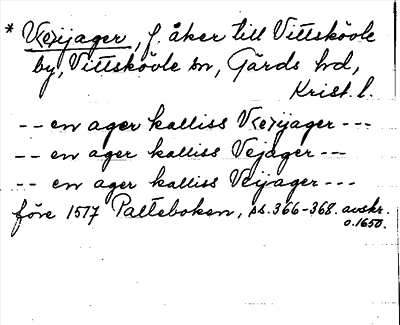 * V(e)ijager, f. åker till Vittskövle
by, Vittskövle sn, Gärds hd,
Krist. l.
-- en ager kalliss V<e>ijager ---
-- en ager kalliss Vejager ---
-- en ager kalliss Veijager ---
före 1517 Palteboken, ss. 366-368. avskr.
o. 1650.